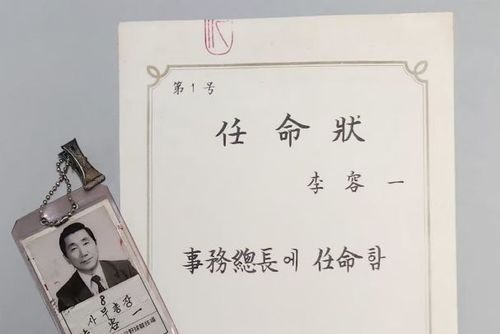 第1号
任命狀
李容一
事務總長에 任命함
8
사무총장
容一